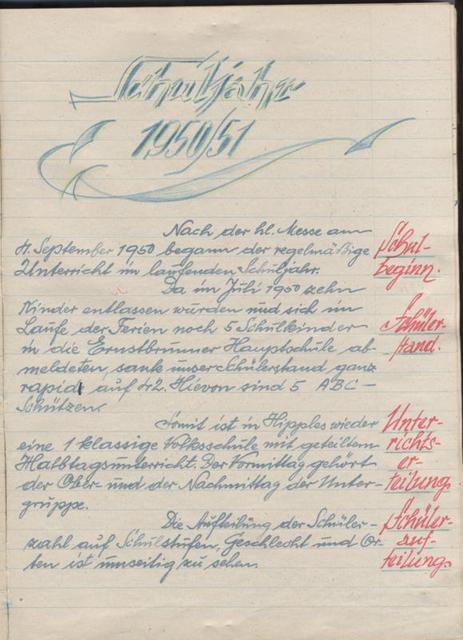 Schuljahr
1950/51
Nach der hl. Messe am
4. September 1950 begann der regelmäßige
Unterricht im laufenden Schuljahr.
Schul-
beginn.
Da im Juli 1950 zehn
Kinder entlassen wurden und sich im
Laufe der Ferien noch 5 Schulkinder
in die Ernstbrunner Hauptschule ab-
meldeten, sank unser Schülerstand ganz
rapid auf 42. Hievon sind 5 ABC-
Schützen.
Schüler-
stand.
Somit ist in Hipples wieder
eine 1 klassige Volksschule mit geteiltem
Halbtagsunterricht. Der Vormittag gehört
der Ober- und der Nachmittag der Unter-
gruppe.
Unter-
richts-
er-
teilung.
Die Aufteilung der Schüler-
zahl auf Schulstufen, Geschlecht und Or-
ten ist umseitig zu sehen.
Schüler-
auf-
teilung.